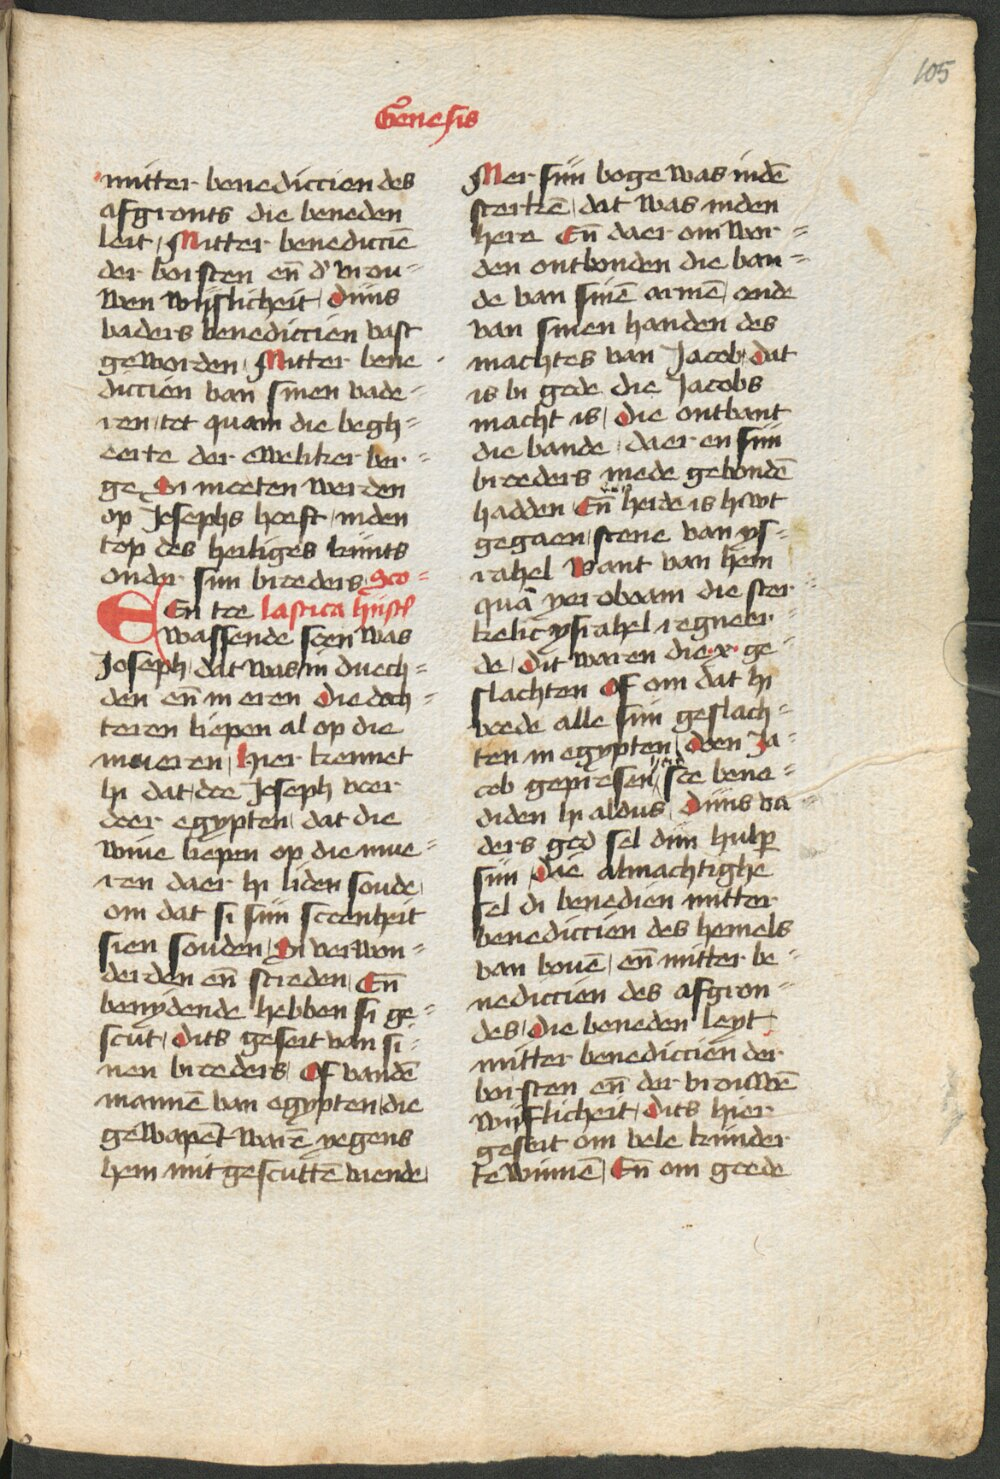 105
Genesis
mitter benediccien des
afgronts die beneden
leit Mitter benediccië
der borsten eñ d' vrou=
wen wijflicheit Dijns
vaders benediccien vast
geworden Mitter bene
diccien van sinen vade=
ren tot quam die begh=
eerte der eweliker ber=
ge Si moeten werden
op Josephs hooft inden
top des heiliges kints
onder sijn broeders Sco=
EEn toe lastica histo
wassende soen was
Joseph dat was in duech=
den eñ in eren Die doch=
teren liepen al op die
mueren Hier kennet
hi dat doe Joseph voer
doer egypten dat die
wiue liepen op die mue=
ren daer hi liden soude
om dat si sijn scoenheit
sien souden Si verwon=
derden eñ streden Eñ
benydende hebben si ge=
scut Dits geseit van si=
nen broeders Of vandē
mannē van egypten die
gewapēt warē yegens
hem mit gescuttē viende
Mer sijn boge was indē
stertzē dat was inden
here Eñ daer om wor=
den ontbonden die ban=
de van sinē armē ende
van sinen handen des
machtes van Jacob dat
is bi gode die Jacobs
macht is die ontbant
die bande daer en sijn
broeders mede gebondē
hadden Eñ herde is hi wt
gegaen stene van ys=
rahel Want van hem
quā yeroboam die ster
kelic ysrahel regneer=
de Dit waren die .x. ge=
slachten Of om dat hi
voede alle sijn geslach=
ten in egypten doen Ja=
cob gepresen soe bene=
diden hi aldus Dijns va
ders god sel dijn hulper
sijn Die almachtighe
sel di benedien mitter
benediccien des hemels
van bouē eñ mitter be=
nediccien des afgron=
des die beneden leyt
mitter benediccien der
borsten eñ der vrouwē
wijflicheit Dits hier
geseit om vele kinder
te winnē Eñ om goede